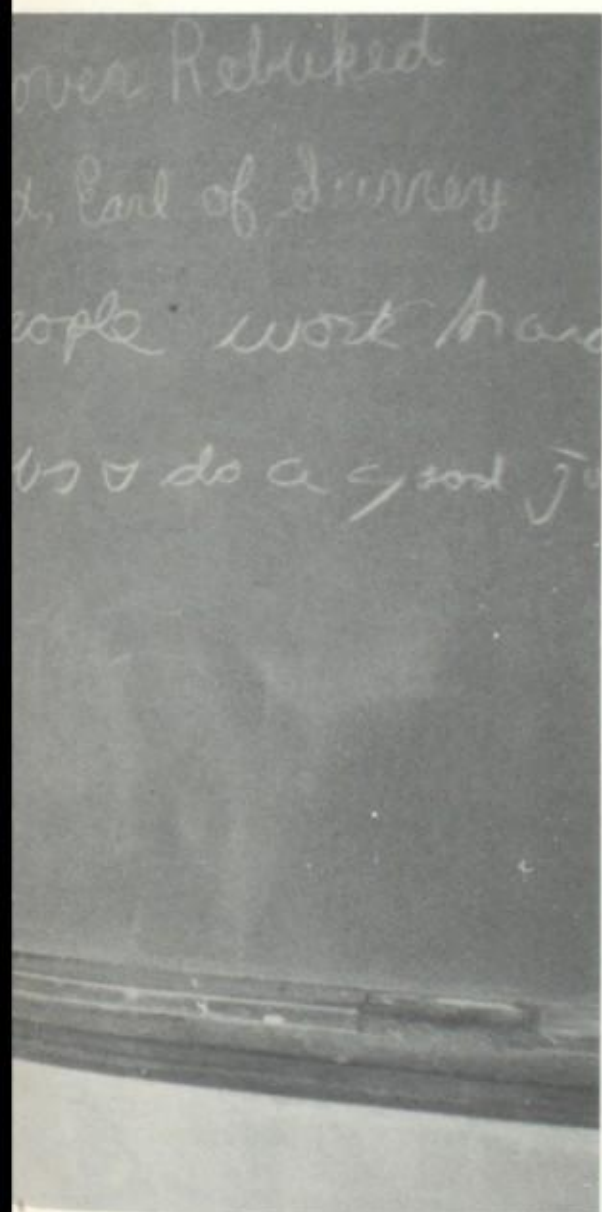 over Rebuked
d, Earl of Surrey
eople work hard
bs & do a good jo